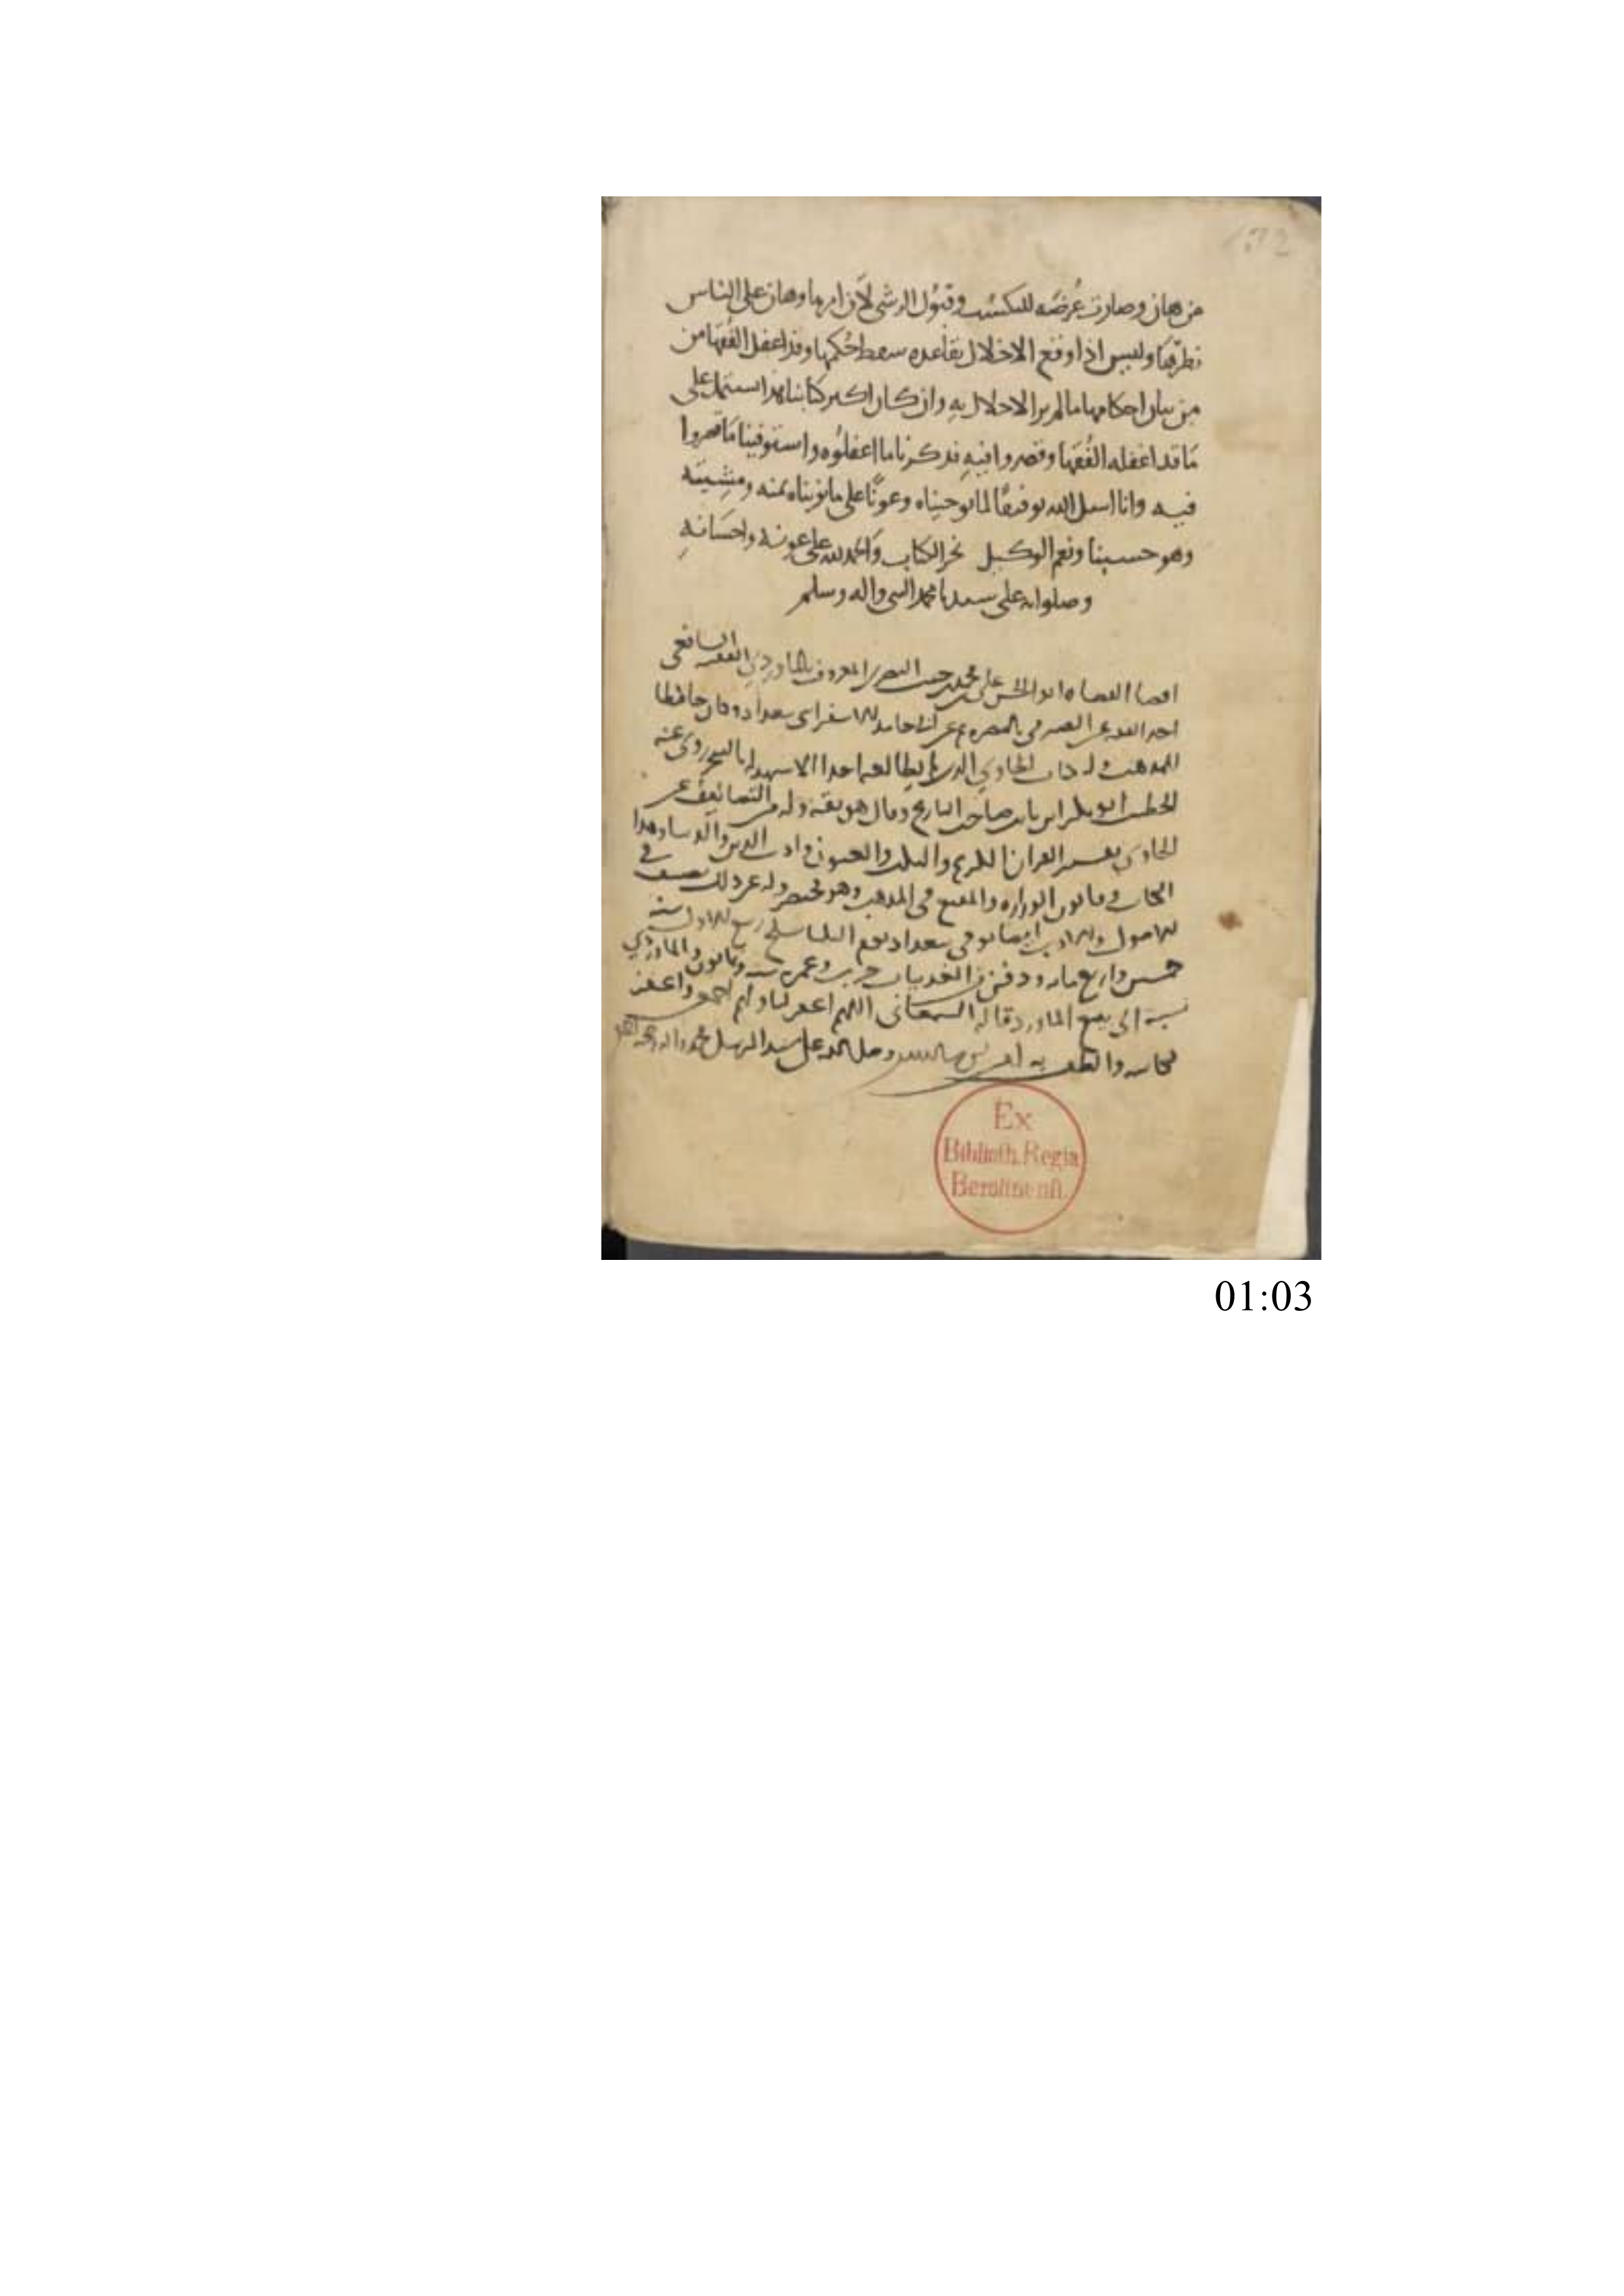 172
من هان وصارت عُرضَه للتكسُب وقبُول الرشى لَان امرها وهان على الناس
تطرّقها وليس اذا وقع الاخلال بقاعده سقط حُكمها وقد اغفل الفُقهَا من
من بيان احكامها ما لم يرا الاخلال بهِ وان كان اكثر كتابنا هذا اشتمل على
مَا قد اغفله الفُقهَا وقصروا فيهِ فذكرنا ما اغفلُوه واستوفينا مَا قصروا
فيه وانا اسل الله توفيقًا لما توخيناه وعونًا على ما نويناه بمنه ومشِيته
وهو حسبنا ونعم الوكيل نجز الكتاب وَالحمد لله على عونه واحسَانهِ
وصلواته على سيدنا محمد النبى واله وسلم
اقضا القضاه ابو الحسن على بن محمد بن حبيب البصرى المعروف بالماوردي الفقيه الشافعى
اخذ الفقه عن الصيمرى بالبصره ثم عن ابى حامد الاسفراينى ببغداد وكان حافظا
للمذهب وله كتاب الحاوي الذى ما يطالعه احد الا شهد له بالتبحر روى عنه
الخطيب ابو بكر بن ثابت صاحب التاريخ وقال هو ثقه وله من التصانيف غير
الحاوى تفسير القران الكريم والنكت والعيون وادب الدين والدنيا وهذا
الكتاب وقانون الوزاره والاقناع فى المذهب وهو مختصر وله غير ذلك تصنيف في
الاصول والادب ايضا توفى ببغداد يوم الثلثا سلخ ربيع الاول سنه
خمسين واربع مايه ودفن من الغد بباب حرب وعمره ست وثمانون والماوردي
نسبة الى بيع الماورد قاله السمعانى اللهم اغفر لنا وله اجمعين واغفر
لكاتبه والطف به وصل الله على سيد المرسلين محمد واله وصحبه
Ex
Biblioth. Regia
Berolinensi.
01:03